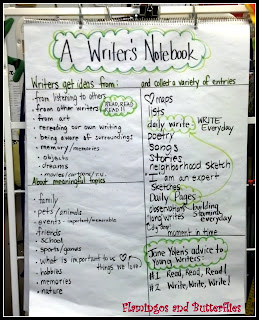 A Writer's Notebook
Writers get ideas from:
- from listening to others
- from other writers
READ, READ
READ!!!
- from art
- rereading our own writing
- being aware of surroundings
- memory/memories
- objects
- dreams
- movies/cartoons/
About meaningful topics
- family
- pets/animals
- events - important/memorable
- friends
- school
- sports/games
- what is important to us
things we love!
- hobbies
- memories
- nature
and collect a variety of entries
maps
lists
daily write
WRITE
Everyday
poetry
songs
stories
neighborhood sketch
I am an expert
sketches
Daily Pages
observations
long writes
building
Stamina
everyday
moment in time
Jane Yolen's advice to
Young Writers:
#1 Read, Read, Read!
#2 Write, Write, Write!
Flamingos and Butterflies